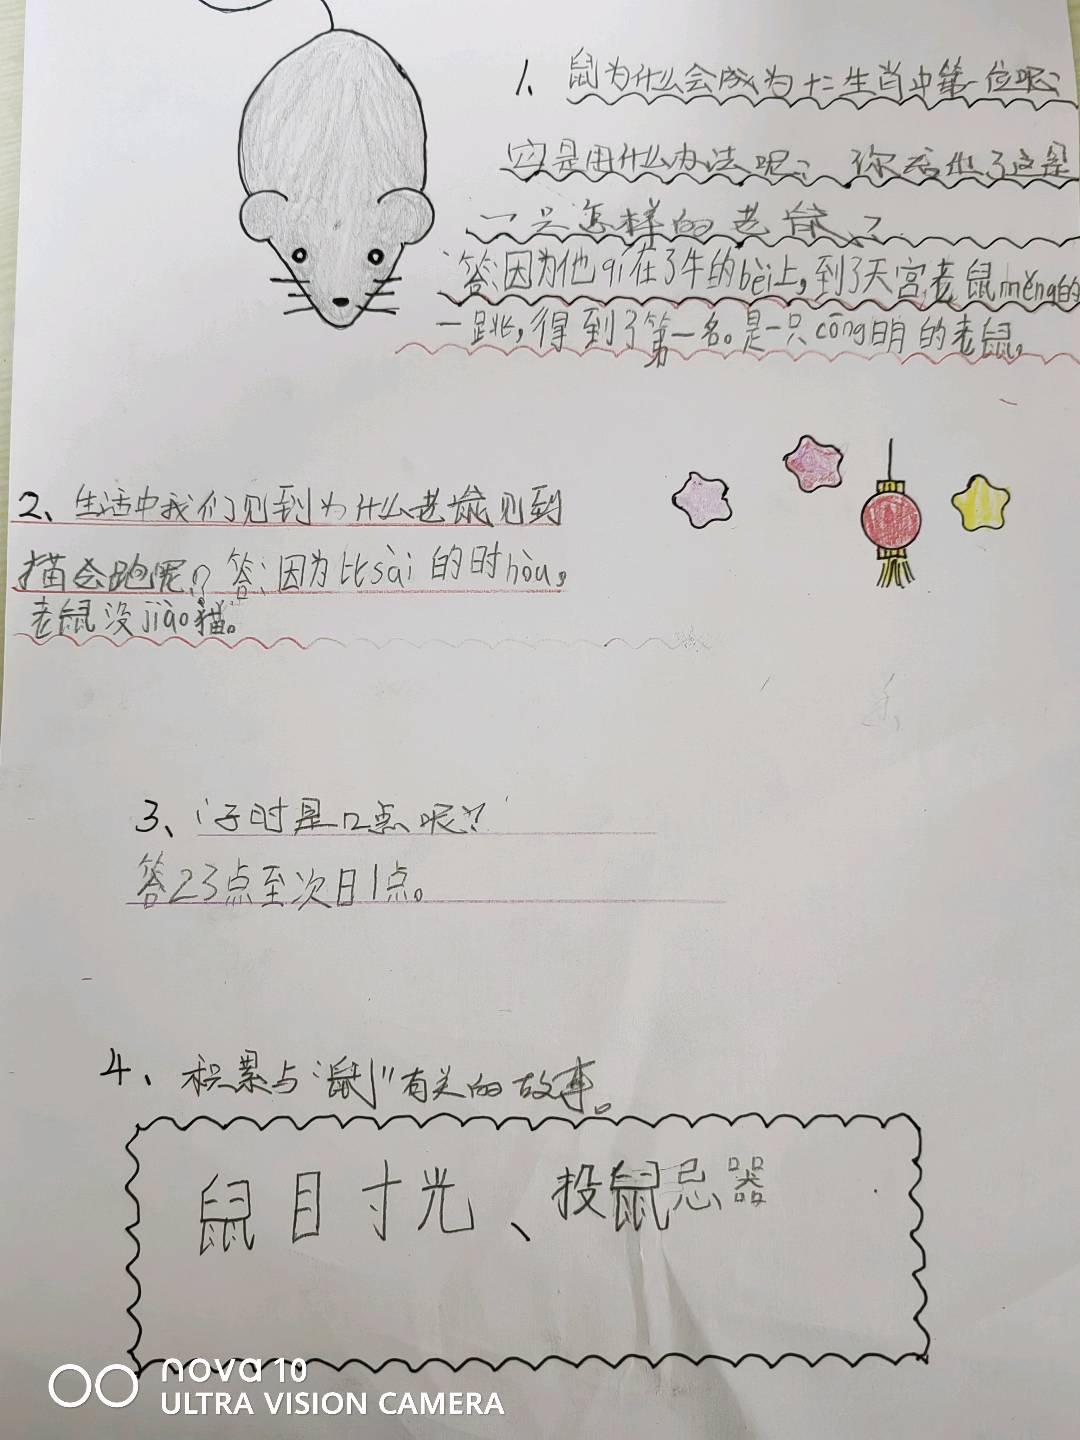 1、鼠为什么会成为十二生肖中第一位呢？
它是用什么办法呢？你看出了这是
一只怎样的老鼠？
答：因为他qí在了牛的bèi上，到了天宫老鼠měng的
一跳，得到了第一名。是一只cōng明的老鼠。
2、生活中我们见到为什么老鼠见到
猫会跑呢？答：因为比sài的时hòu，
老鼠没jiào猫。
3、“子时是几点呢？
答23点至次日1点。
4、积累与“鼠”有关的故事。
鼠目寸光、投鼠忌器
nova 10
ULTRA VISION CAMERA